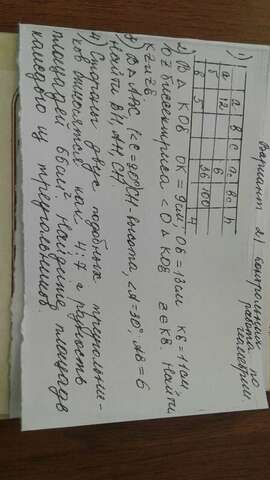 Вариант 21 Контрольная работа по геометрии.
1)
a b c a_c b_c h
a 12 6
б 5 36 100
в 5 4
2) В △ КОВ ОК = 9см, ОВ = 13см КВ = 11см.
OZ биссектриса <О △ КОВ Z∈КВ. Найти
KZ и ZВ.
3) В △ АВС (<С = 90°) СН высота, <А = 30°. АВ = 6
Найти ВН, АН, СН.
4) Стороны двух подобных треугольни-
ков относятся как 4:7 а разность
площадей 66см² Найдите площадь
каждого из треугольников.